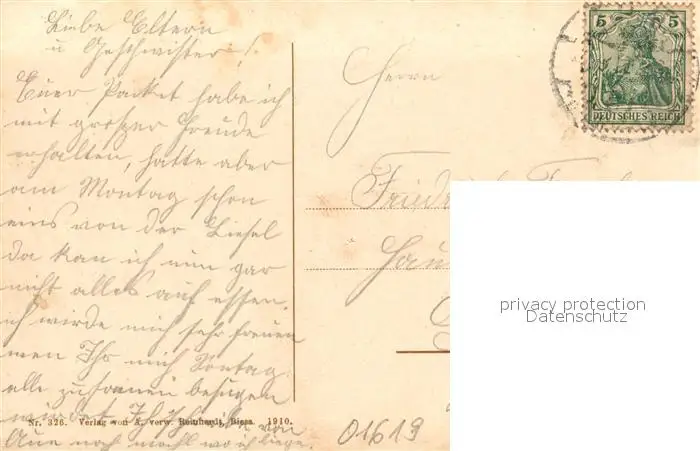 Liebe Eltern
u Geschwister!
Euer Packet habe ich
mit groszer Freude
erhalten, hatte aber
am Montag schon
eins von der Liesel
da kan ich nun gar
nicht alles auf essen.
ich wirde mich sehr freuen
wen Ihr mich Sontag
alle zusamen besugen
würdet
von
Aue noch
Nr. 326. Verlag von A. verw. Reinhardt, Riesa. 1910.
Herrn
5 5
DEUTSCHES REICH
privacy protection
Datenschutz
01619